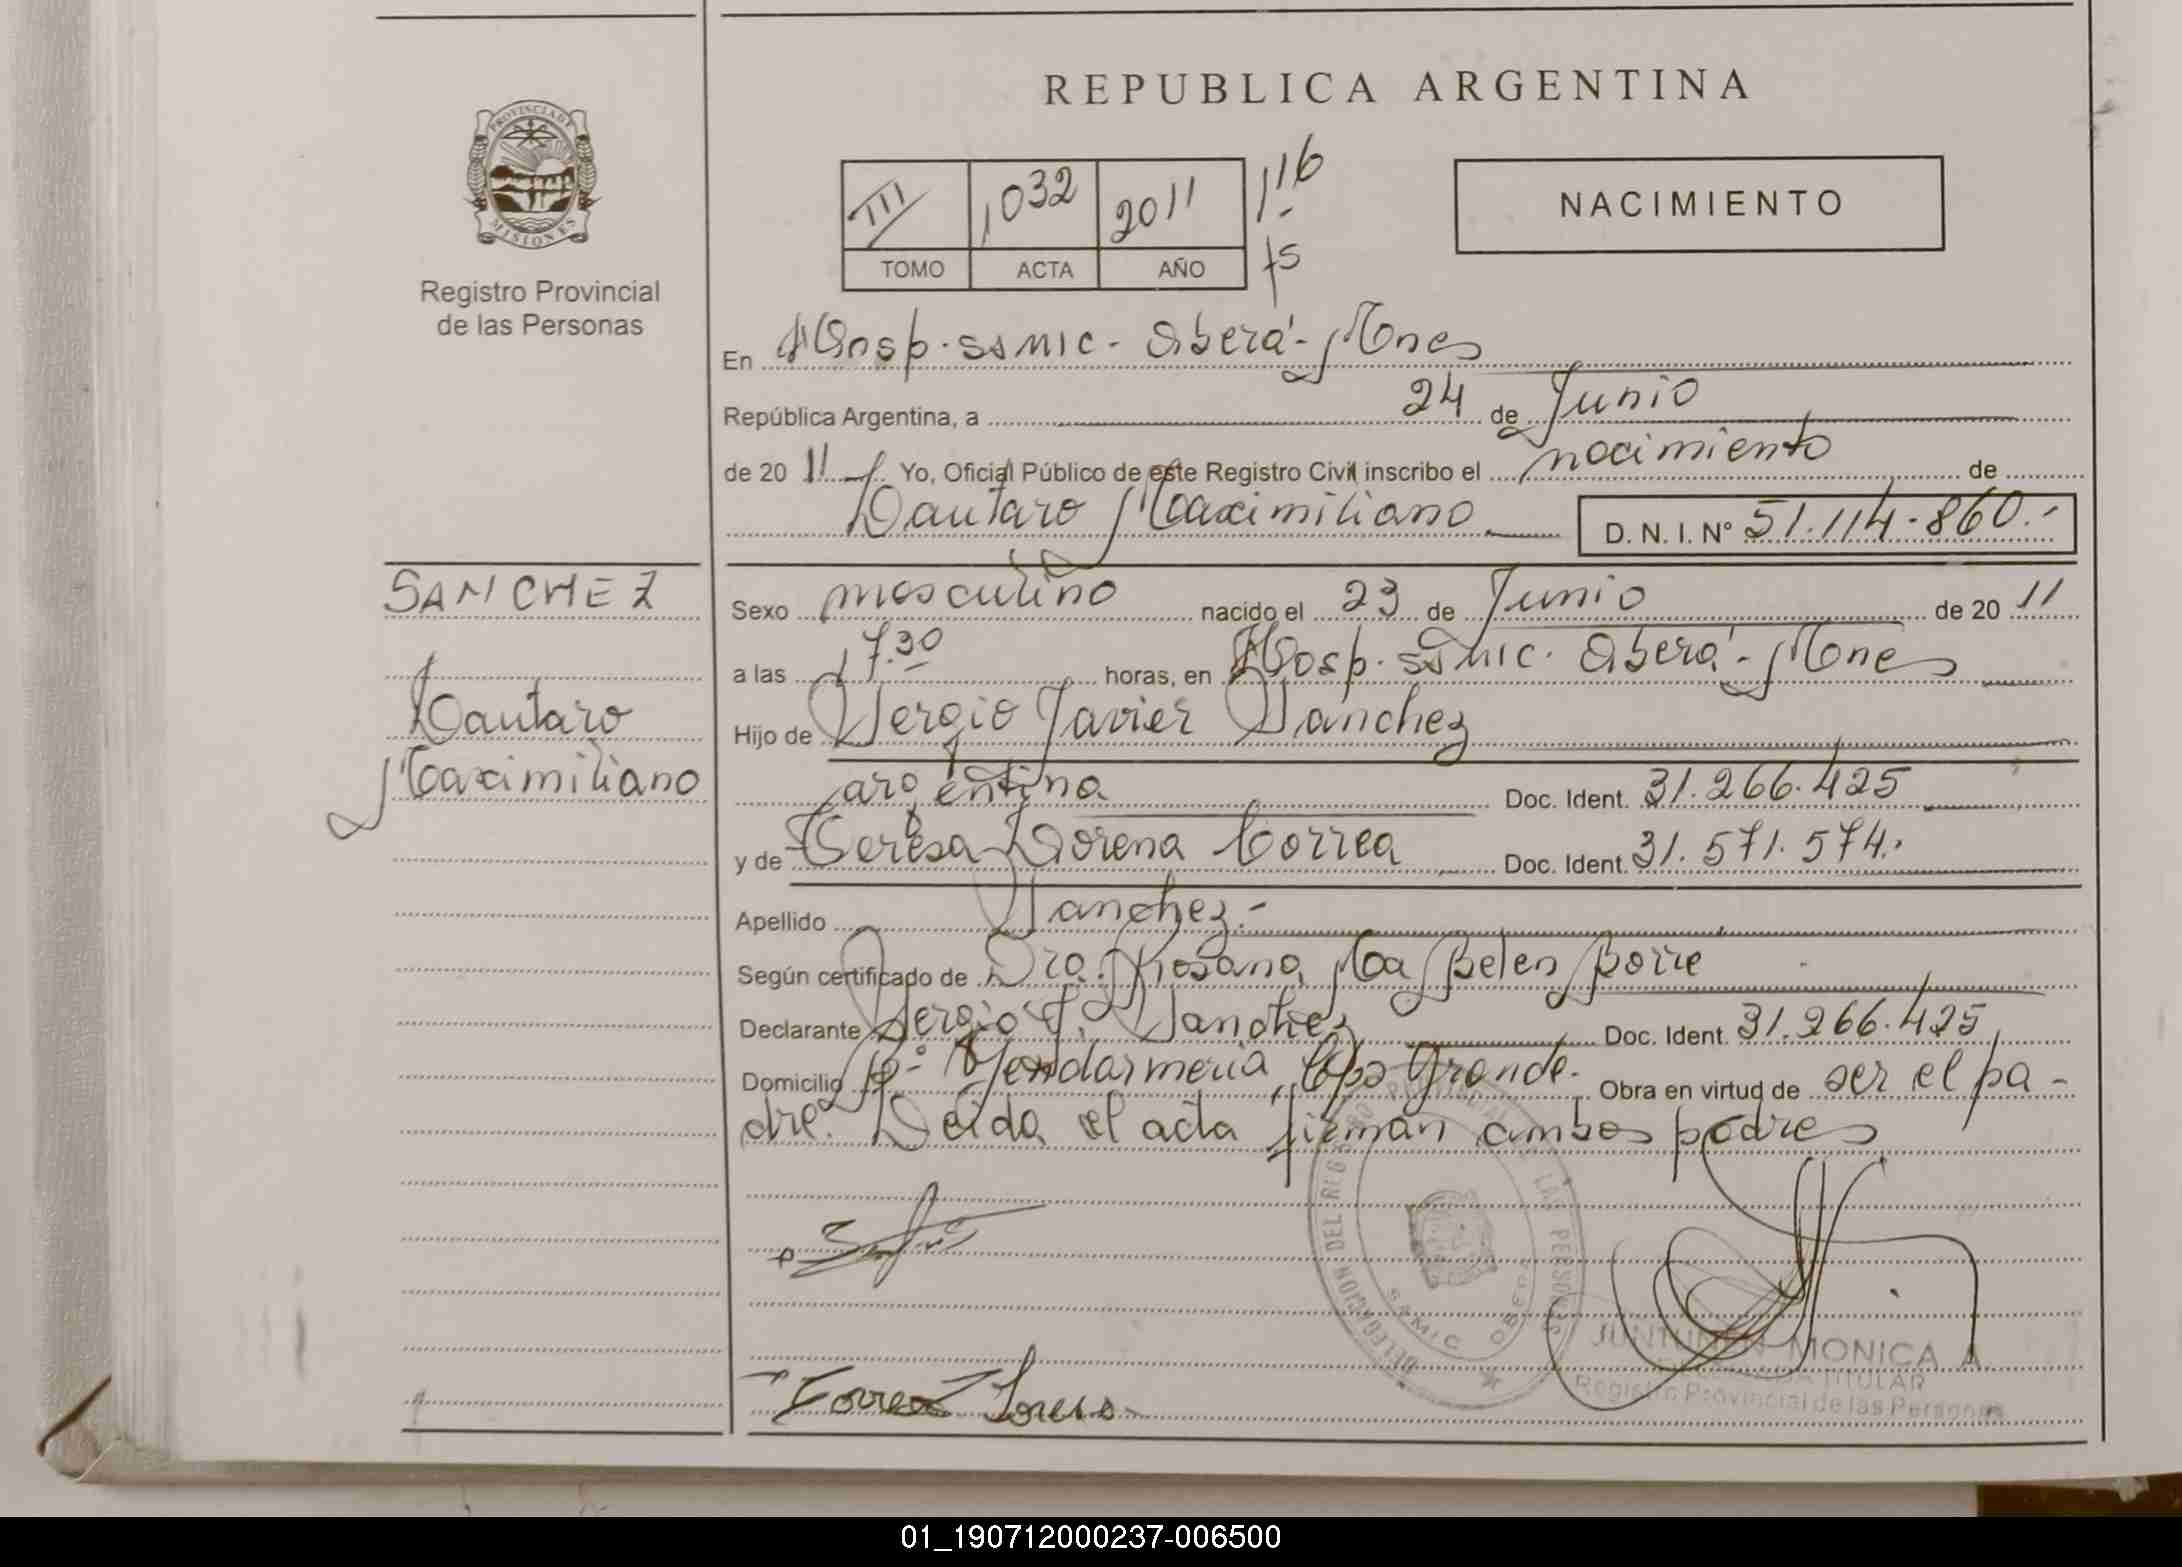 REPUBLICA ARGENTINA
PROVINCIA DE
MISIONES
Registro Provincial
de las Personas
III 1032 2011 116
TOMO ACTA AÑO fs
NACIMIENTO
En Hosp. SAMIC - Oberá - Mnes
República Argentina, a 24 de Junio
de 2011 Yo, Oficial Público de este Registro Civil inscribo el nacimiento de
Lautaro Maximiliano D. N. I. Nº 51.114.860.-
SANCHEZ
Lautaro
Maximiliano
Sexo masculino nacido el 23 de Junio de 2011
a las 17.30 horas, en Hosp. SAMIC. Oberá - Mnes
Hijo de Sergio Javier Sanchez
argentina Doc. Ident. 31.266.425
y de Teresa Lorena Correa Doc. Ident. 31.571.574.-
Apellido Sanchez.-
Según certificado de Dra. Rosana Ma Belen Borre
Declarante Sergio J. Sanchez Doc. Ident. 31.266.425
Domicilio Bº Gendarmeria Cpo Grande. Obra en virtud de ser el pa-
dre. Leida el acta firman ambos padres
DELEGACION DEL REGISTRO PROVINCIAL DE LAS PERSONAS
SAMIC OBERA
MONICA A
TITULAR
Registro Provincial de las Personas
Correa Lorena
01_190712000237-006500